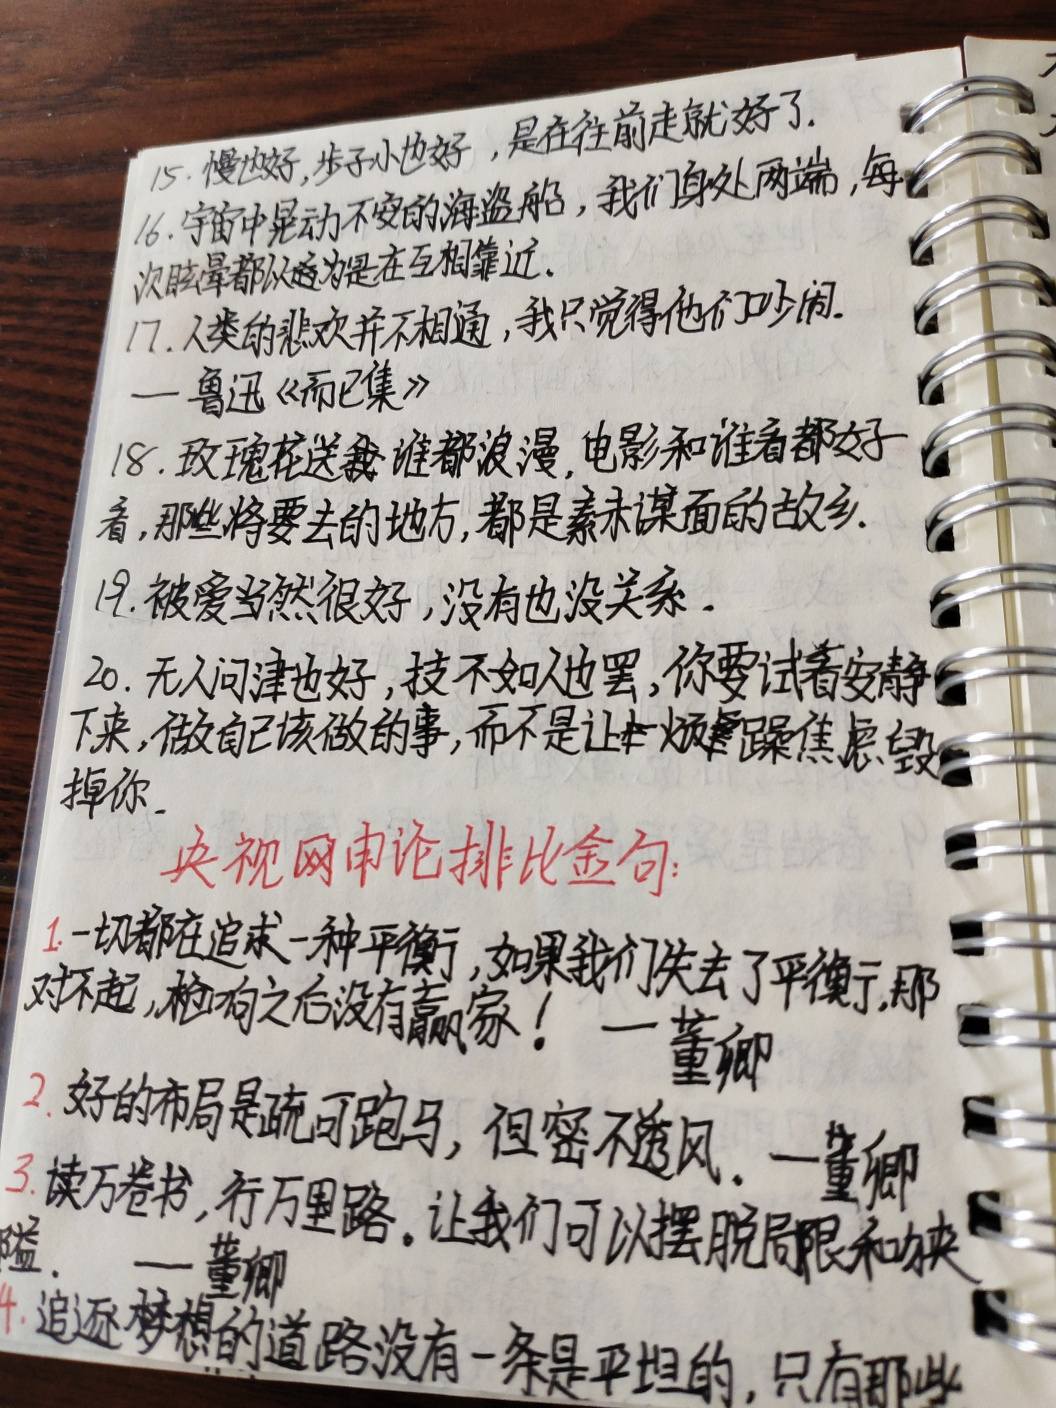 15. 慢也好,步子小也好,是在往前走就好了.
16. 宇宙中晃动不安的海盗船,我们身处两端,每
次眩晕都以为是在互相靠近.
17. 人类的悲欢并不相通,我只觉得他们吵闹.
— 鲁迅《而已集》
18. 玫瑰花送谁都浪漫,电影和谁看都好
看,那些将要去的地方,都是素未谋面的故乡.
19. 被爱当然很好,没有也没关系.
20. 无人问津也好,技不如人也罢,你要试着安静
下来,做自己该做的事,而不是让烦躁焦虑毁
掉你.
央视网申论排比金句:
1.一切都在追求一种平衡,如果我们失去了平衡,那
对不起,枪响之后没有赢家! —董卿
2.好的布局是疏可跑马,但密不透风. —董卿
3.读万卷书,行万里路。让我们可以摆脱局限和狭
隘. —董卿
4.追逐梦想的道路没有一条是平坦的,只有那些